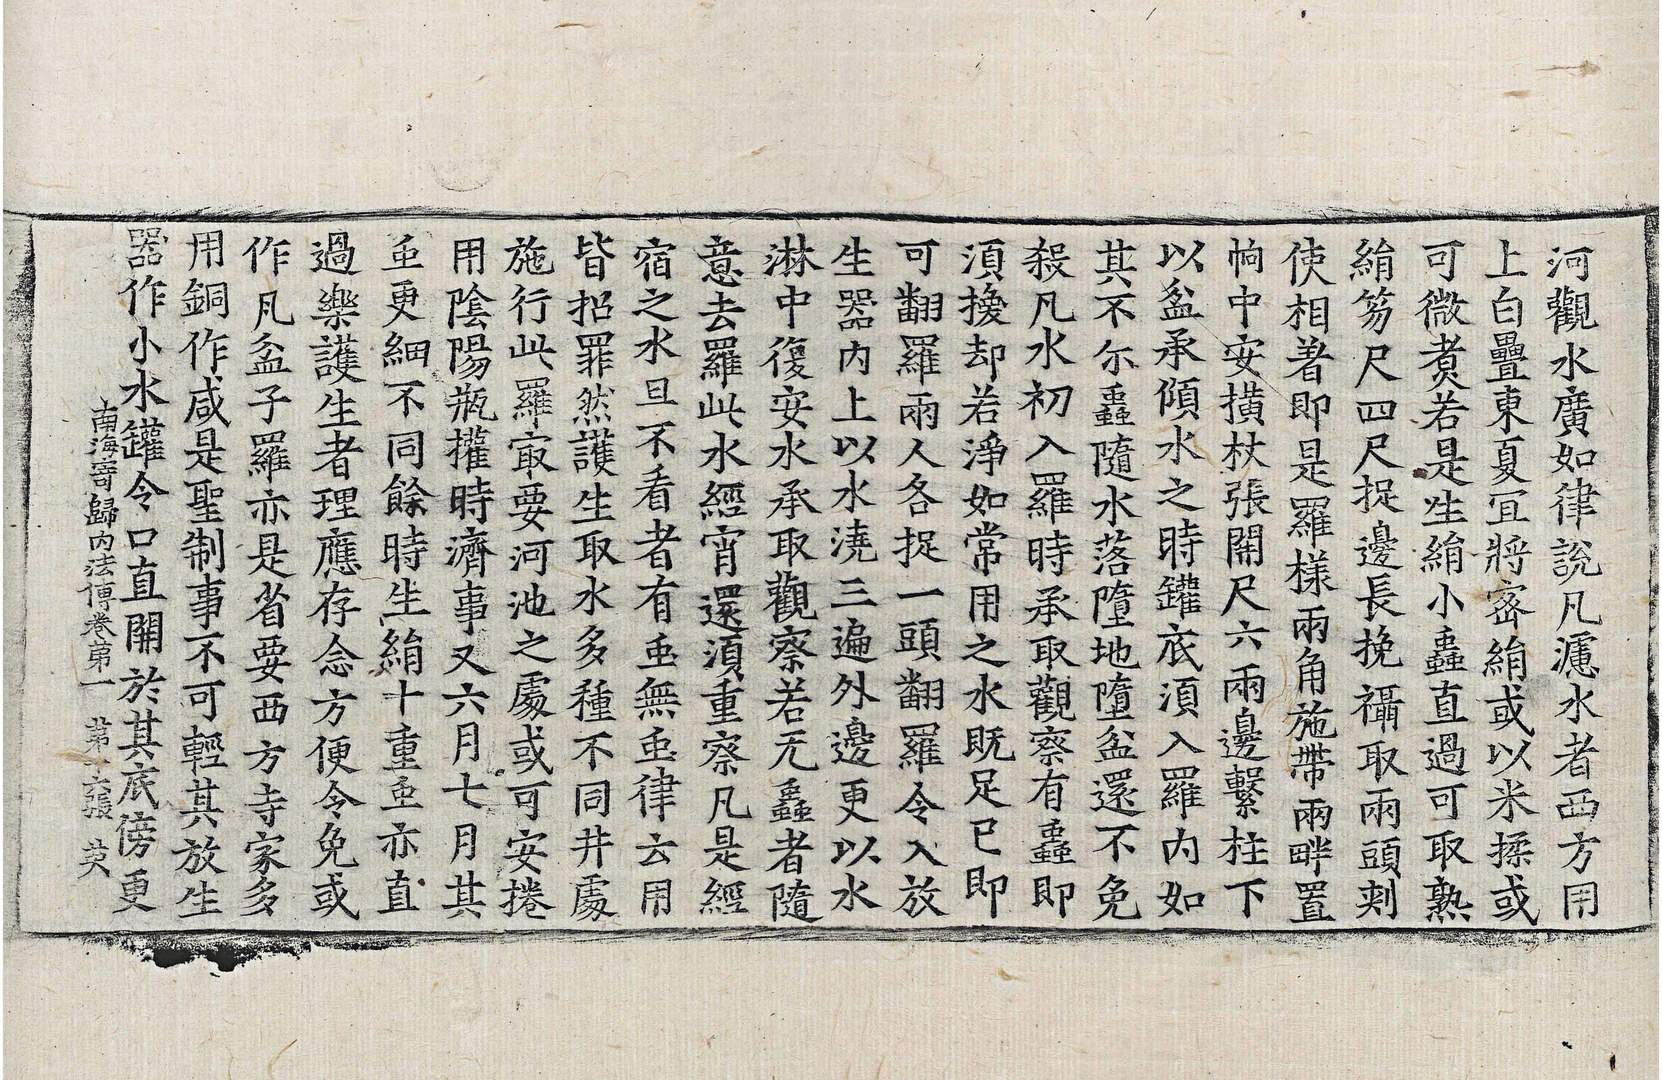 河觀水廣如律說凡濾水者西方用
上白疊東夏冝將宻絹或以米揉或
可微煑若是生絹小䖝直過可取熟
絹笏尺四尺捉邊長挽襵取兩頭刺
使相著即是羅樣兩角施帶兩畔置
㡇中安橫杖張開尺六兩邊繫柱下
以盆承傾水之時罐底湏入羅内如
其不尒蟲隨水落墮地墮盆還不免
殺凡水初入羅時承取觀察有蟲即
湏換却若淨如常用之水旣足已即
可翻羅兩人各捉一頭翻羅令入放
生器内上以水澆三遍外邊更以水
淋中復安水承取觀察若无蟲者隨
意去羅此水經宵還湏重察凡是經
宿之水旦不看者有䖝無䖝律云用
皆招罪然護生取水多種不同井處
施行此羅㝡要河池之處或可安捲
用陰陽瓶權時濟事又六月七月其
䖝更細不同餘時生絹十重䖝亦直
過樂護生者理應存念方便令免或
作凡盆子羅亦是省要西方寺家多
用銅作咸是聖制事不可輕其放生
器作小水罐令口直開於其底傍更
南海寄歸内法傳卷第一　第十六張　英